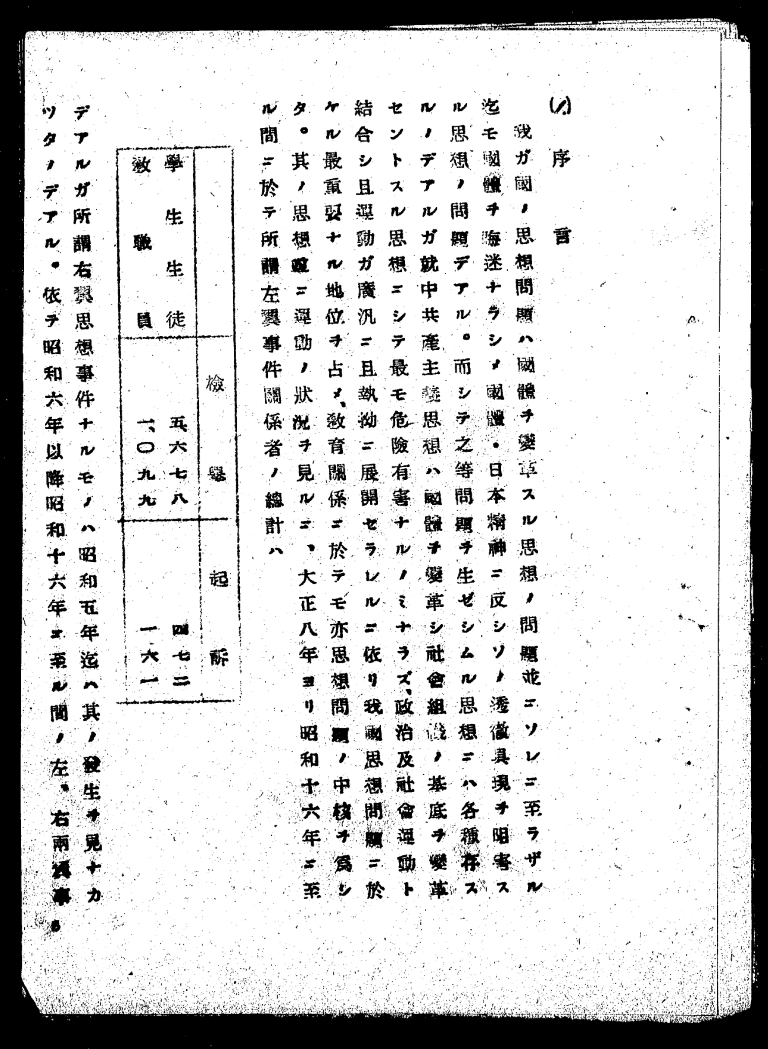 (1) 序言
我ガ國ノ思想問題ハ國體ヲ變革スル思想ノ問題並ニソレニ至ラザル
迄モ國體ヲ晦迷ナラシメ國體・日本精神ニ反シソノ透徹具現ヲ阻害ス
ル思想ノ問題デアル。而シテ之等問題ヲ生ゼシムル思想ニハ各種存ス
ルノデアルガ就中共産主義思想ハ國體ヲ變革シ社會組織ノ基底ヲ變革
セントスル思想ニシテ最モ危險有害ナルノミナラズ、政治及社會運動ト
結合シ且運動ガ廣汎ニ且執拗ニ展開セラレルニ依リ我國思想問題ニ於
ケル最重要ナル地位ヲ占メ、教育關係ニ於テモ亦思想問題ノ中核ヲ爲シ
タ。其ノ思想竝ニ運動ノ狀況ヲ見ルニ、大正八年ヨリ昭和十六年ニ至
ル間ニ於テ所謂左翼事件關係者ノ總計ハ
檢擧 起訴
學生生徒 五、六七八 四七二
教職員 一、〇九九 一六一
デアルガ所謂右翼思想事件ナルモノハ昭和五年迄ハ其ノ發生ヲ見ナカ
ツタノデアル。依テ昭和六年以降昭和十六年ニ至ル間ノ左、右兩翼事